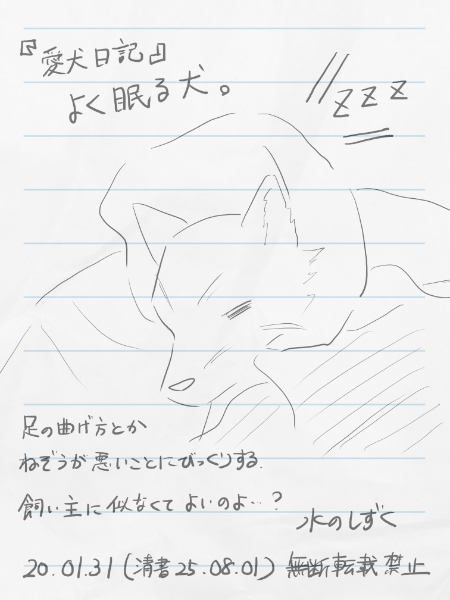 『愛犬日記』
よく眠る犬。
zzz
足の曲げ方とか
ねぞうが悪いことにびっくりする.
飼い主に似なくてよいのよ…?
水のしずく
20.01.31(清書25.08.01) 無断転載禁止